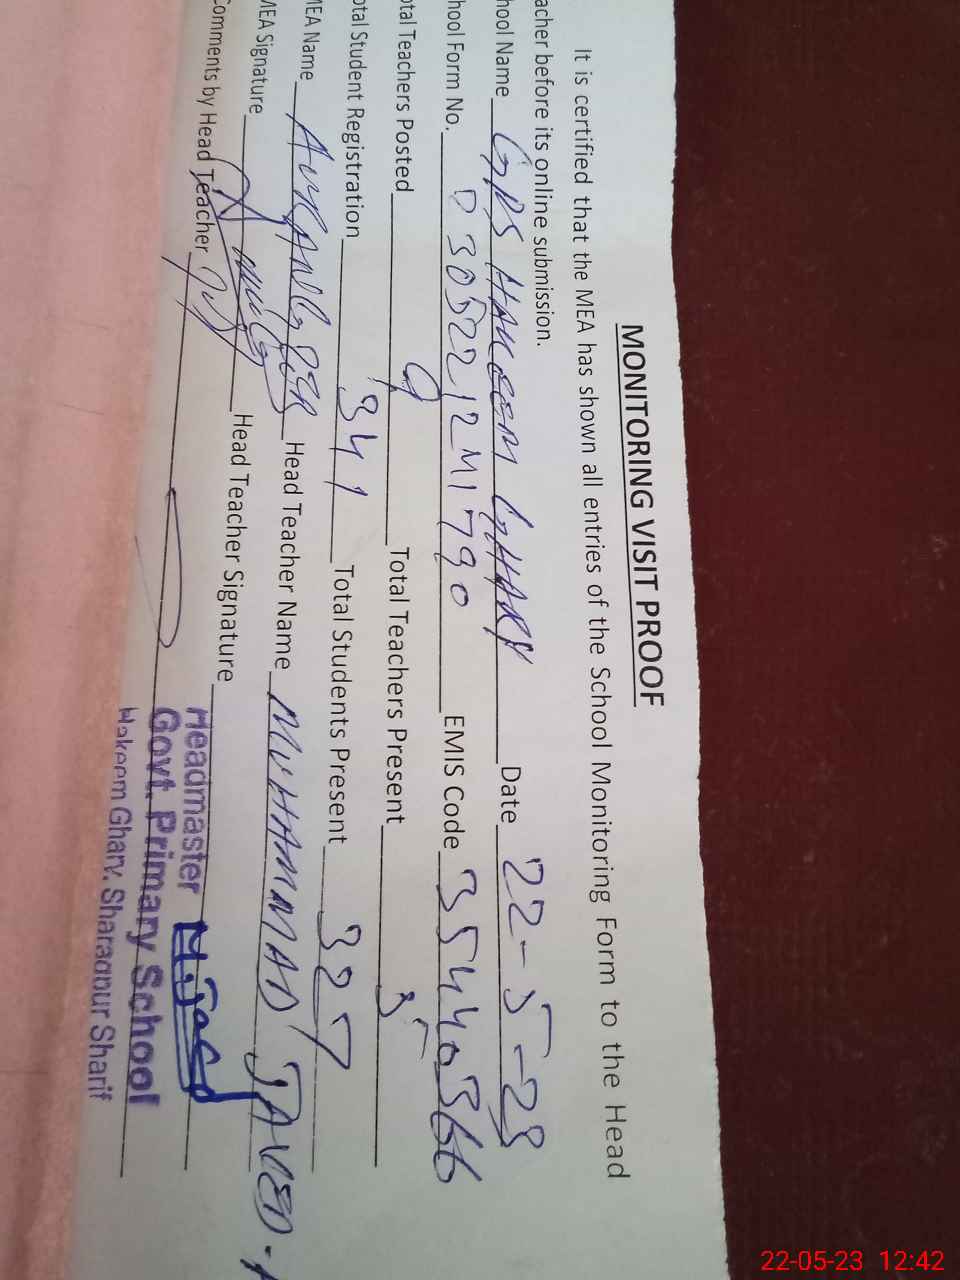 MONITORING VISIT PROOF
It is certified that the MEA has shown all entries of the School Monitoring Form to the Head
acher before its online submission.
hool Name GPS HAKEEM GHARY Date 22-5-23
hool Form No. 23052212M1790 EMIS Code 35440366
otal Teachers Posted 9 Total Teachers Present
otal Student Registration 341 Total Students Present 327
MEA Name AURANGZEB Head Teacher Name MUHAMMAD JAVED
MEA Signature Head Teacher Signature
Comments by Head Teacher
Headmaster
Govt. Primary School
Hakeem Ghary, Sharaqpur Sharif
22-05-23 12:42